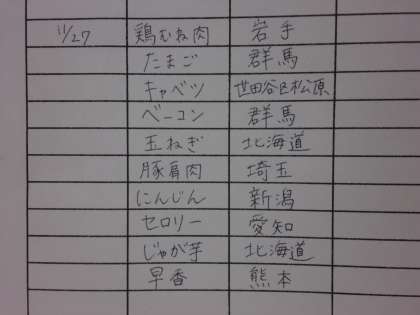 11/27 鶏むね肉 岩手
たまご 群馬
キャベツ 世田谷区松原
ベーコン 群馬
玉ねぎ 北海道
豚肩肉 埼玉
にんじん 新潟
セロリー 愛知
じゃが芋 北海道
早香 熊本